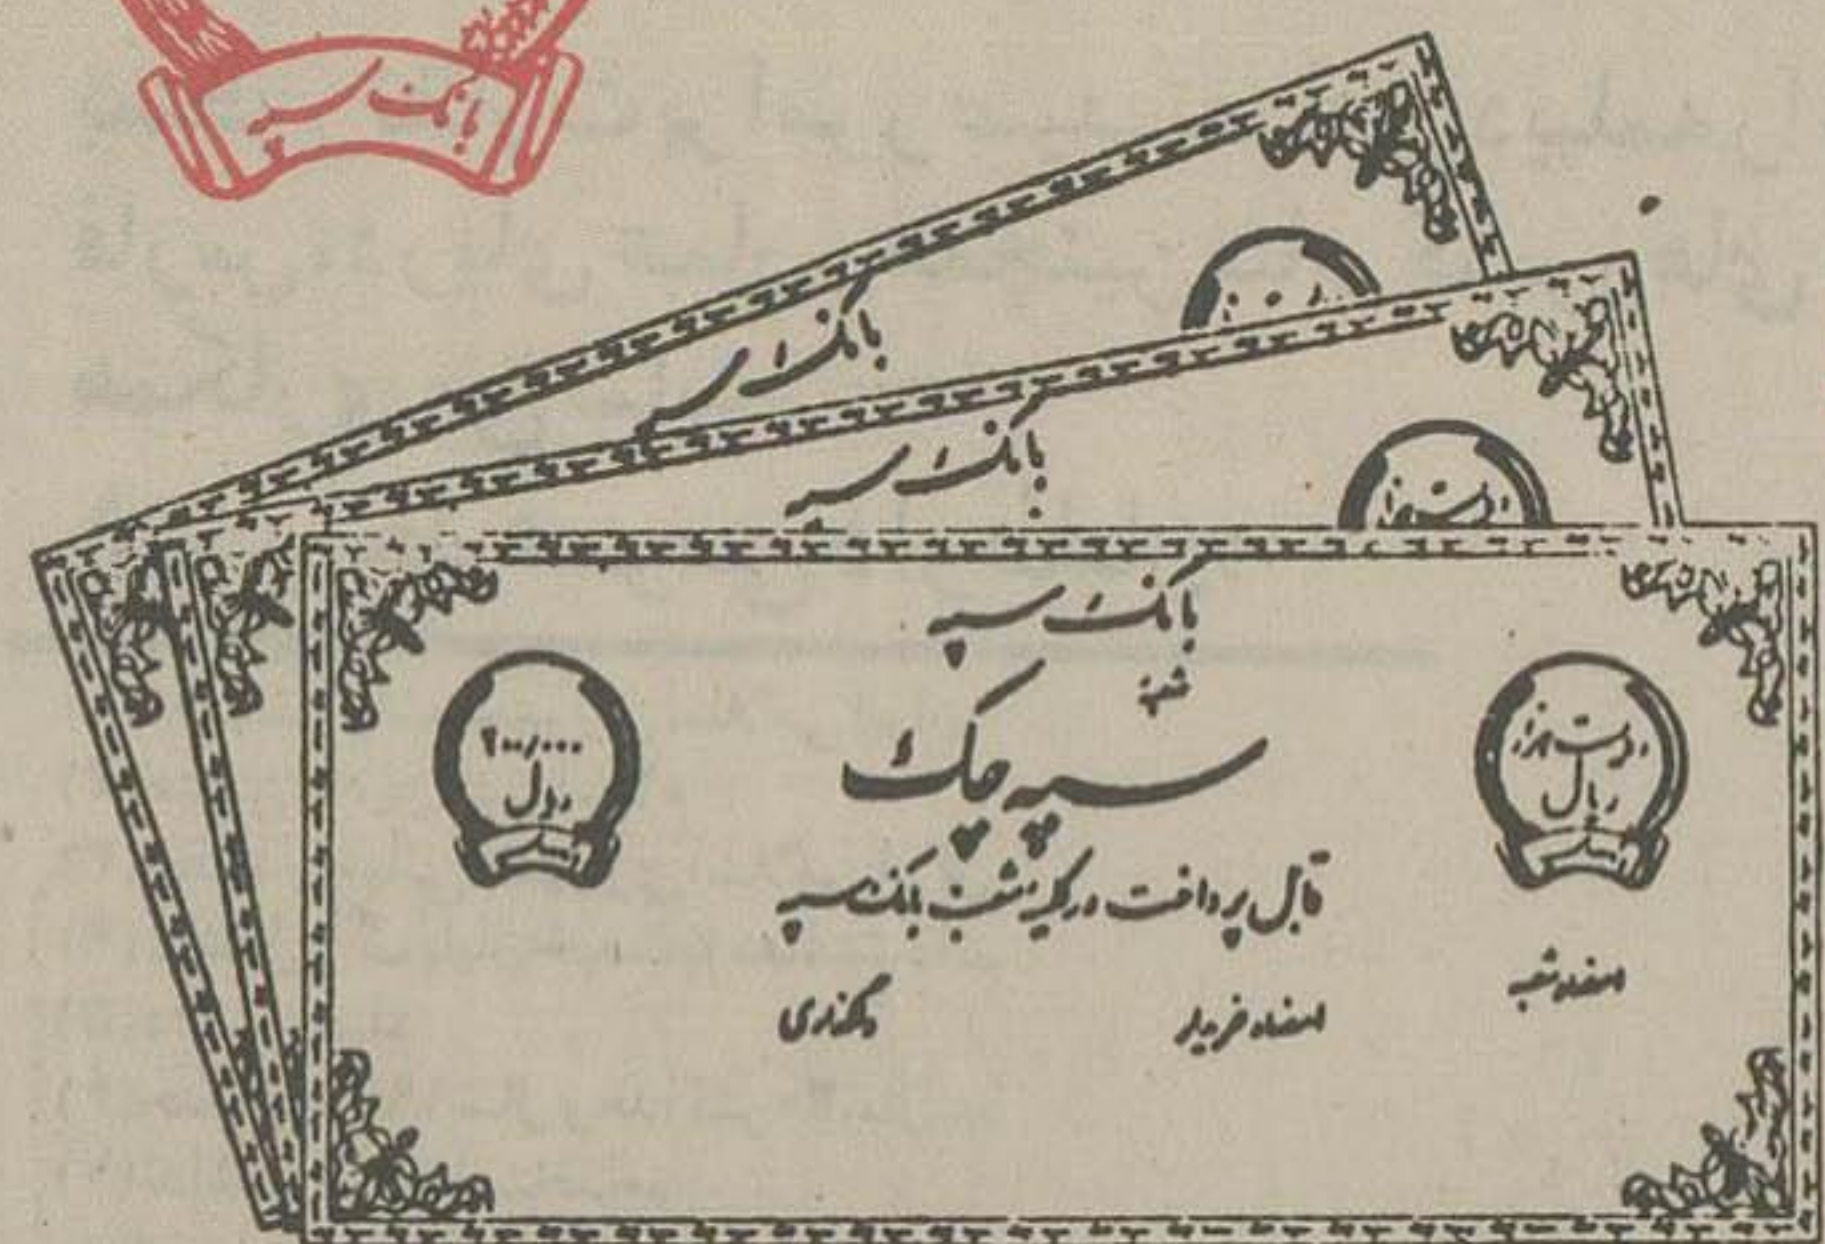 بانک سپه
بانک سپه
بانک سپه
بانک سپه
شعبه
سپه چک
دویست هزار
ریال
۲۰۰/۰۰۰
ریال
قابل پرداخت در کلیه شعب بانک سپه
امضاء شعبه
امضاء خریدار
واگذاری